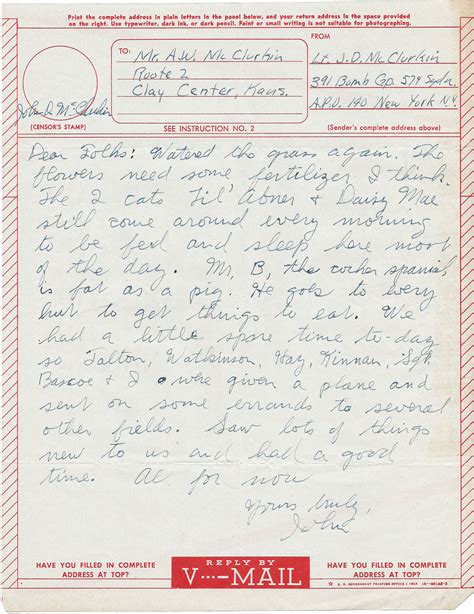 Print the complete address in plain letters in the panel below, and your return address in the space provided
on the right. Use typewriter, dark ink, or dark pencil. Faint or small writing is not suitable for photographing.
TO:
Mr. A.W. Mc Clurkin
Route 2
Clay Center, Kans.
FROM
Lt. J.D. Mc Clurkin
391 Bomb Gp. 574 Sqdn.
A.P.O. 140 New York N.Y.
John D. McClurkin
(CENSOR'S STAMP)
SEE INSTRUCTION NO. 2
(Sender's complete address above)
Dear Folks: Watered the grass again. The
flowers need some fertilizer I think.
The 2 cats Lil' Abner & Daisy Mae
still come around every morning
to be fed and sleep here most
of the day. Mr. B, the cocker spaniel,
is fat as a pig. He goes to every
hut to get things to eat. We
had a little spare time to-day
so Talton, Watkinson, Hay, Kinnan, Sgt.
Bascoe & I were given a plane and
sent on some errands to several
other fields. Saw lots of things
new to us and had a good
time. All for now
Yours truly,
John
HAVE YOU FILLED IN COMPLETE
ADDRESS AT TOP?
REPLY BY
V···—MAIL
HAVE YOU FILLED IN COMPLETE
ADDRESS AT TOP?
U.S. GOVERNMENT PRINTING OFFICE